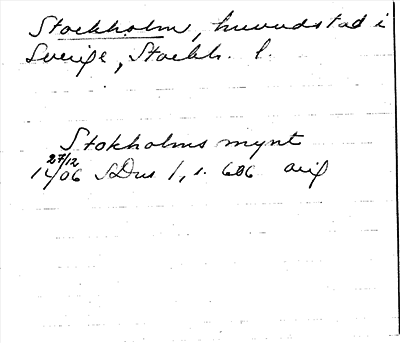 Stockholm, huvudstad i
Sverige, Stockh. l.
Stokholms mynt
27/12
1406 SDns 1, s. 606 orig